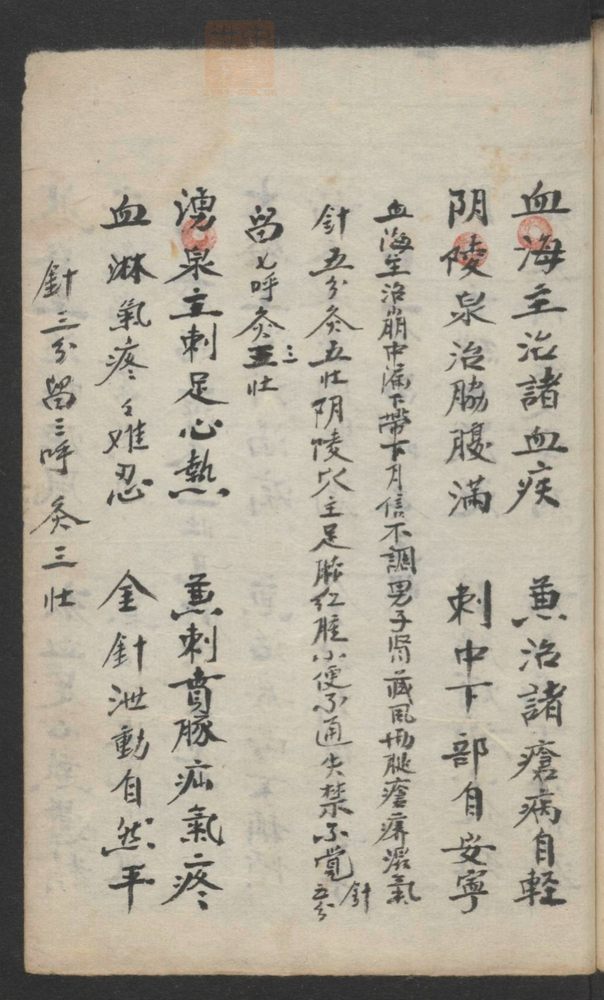 血海主治諸血疾　兼治諸瘡病自軽
阴陵泉治脇腹滿　刺中下部自安寧
血海主治崩中漏下帶下月信不調男子腎藏風両腿瘡痒濕氣
針五分灸五壮阴陵穴主足膝红腫小便不通失禁不覚針五分
留七呼灸三壮
湧泉主刺足心熱　兼刺賁豚疝氣疼
血淋氣疼々难忍　金針泄動自然平
針三分留三呼　灸三壮